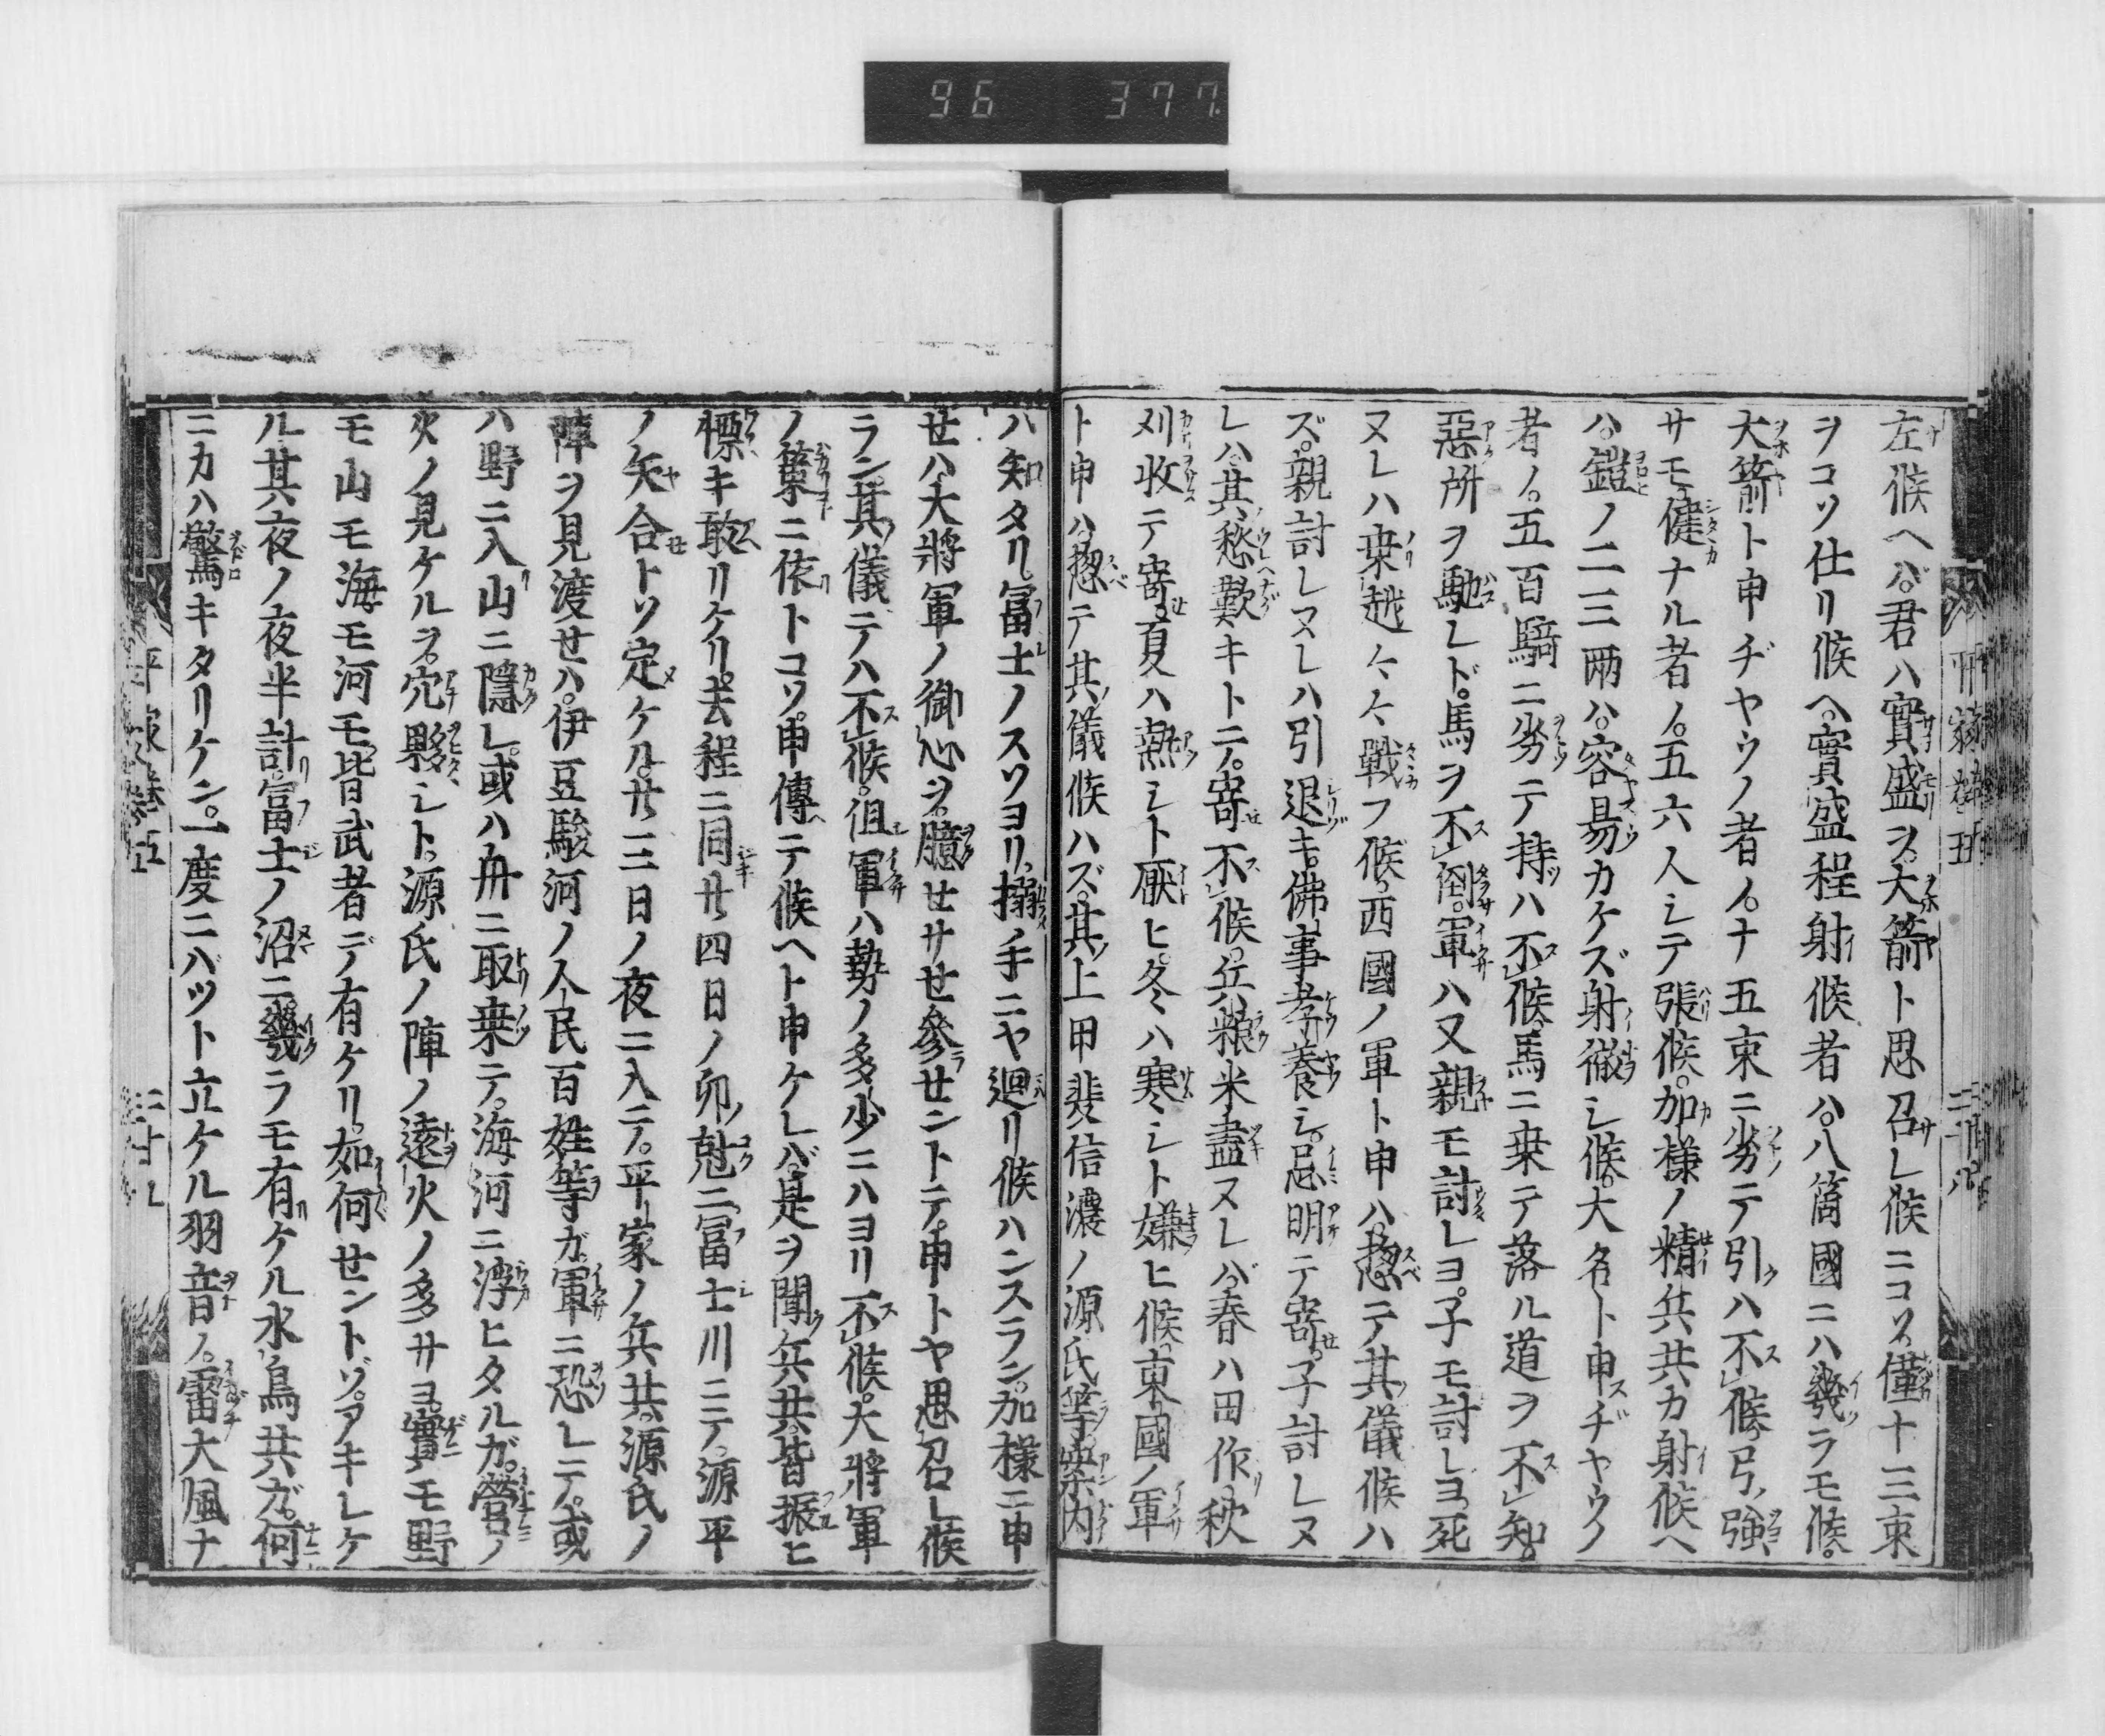 96 377
左候ヘバ。君ハ實盛ヲ。大箭ト思召レ候ニコソ。僅十三束
ヲコソ仕リ候ヘ。實盛程射候者ハ。八箇國ニハ幾ラモ候。
大箭ト申ヂヤウノ者ノ。十五束ニ劣テ引ハ不候。弓ノ強
サモ健ナル者ノ。五六人シテ張候。加樣ノ精兵共カ射候ヘ
ハ。鎧ノ二三兩ハ。容易カケズ射徹シ候。大名ト申ヂヤウノ
者ノ。五百騎ニ劣テ持ハ不候。馬ニ乗テ落ル道ヲ不知。
惡所ヲ馳レド。馬ヲ不倒。軍ハ又親モ討レヨ。子モ討レヨ。死
ヌレハ乗越々々戰フ候。西國ノ軍ト申ハ。惣テ其儀候ハ
ズ。親討レヌレハ引退キ。佛事孝養シ。忌明テ寄。子討レヌ
レハ。其愁歎キトニテ。寄不候。兵粮米盡ヌレバ。春ハ田作。秋
刈收テ寄。夏ハ熱シト厭ヒ。冬ハ寒シト嫌ヒ候。東國ノ軍
ト申ハ。惣テ其儀候ハズ。其上甲斐信濃ノ源氏等。案内
ハ知タリ。富士ノスソヨリ。搦手ニヤ廻リ候ハンスラン。加樣ニ申
せハ。大將軍ノ御心ヲ。臆せサせ參せントテ。申トヤ思召レ候
ラン。其儀ニテハ不候。但軍ハ勢ノ多少ニハヨリ不候。大將軍
ノ策ニ依トコソ。申傳テ候ヘト申ケレバ。是ヲ聞兵共。皆振ヒ
慄キ敢リケリ。去程ニ同廿四日ノ卯ノ尅ニ。富士川ニテ。源平
ノ矢合トソ定ケル。廿三日ノ夜ニ入テ。平家ノ兵共。源氏ノ
陣ヲ見渡せハ。伊豆駿河ノ人民百姓等ガ。軍ニ恐レテ。或
ハ野ニ入山ニ隱レ。或ハ舟ニ取乗テ。海河ニ浮ヒタルガ。營ノ
火ノ見ケルヲ。穴夥シト。源氏ノ陣ノ遠火ノ多サヨ。實モ野
モ山モ海モ河モ。皆武者デ有ケリ。如何せントゾ。アキレケ
ル其夜ノ夜半計。富士ノ沼ニ幾ラモ有ケル水鳥共ガ。何
ニカハ驚キタリケン。一度ニハツト立ケル羽音ノ。雷大風ナ
平家巻五